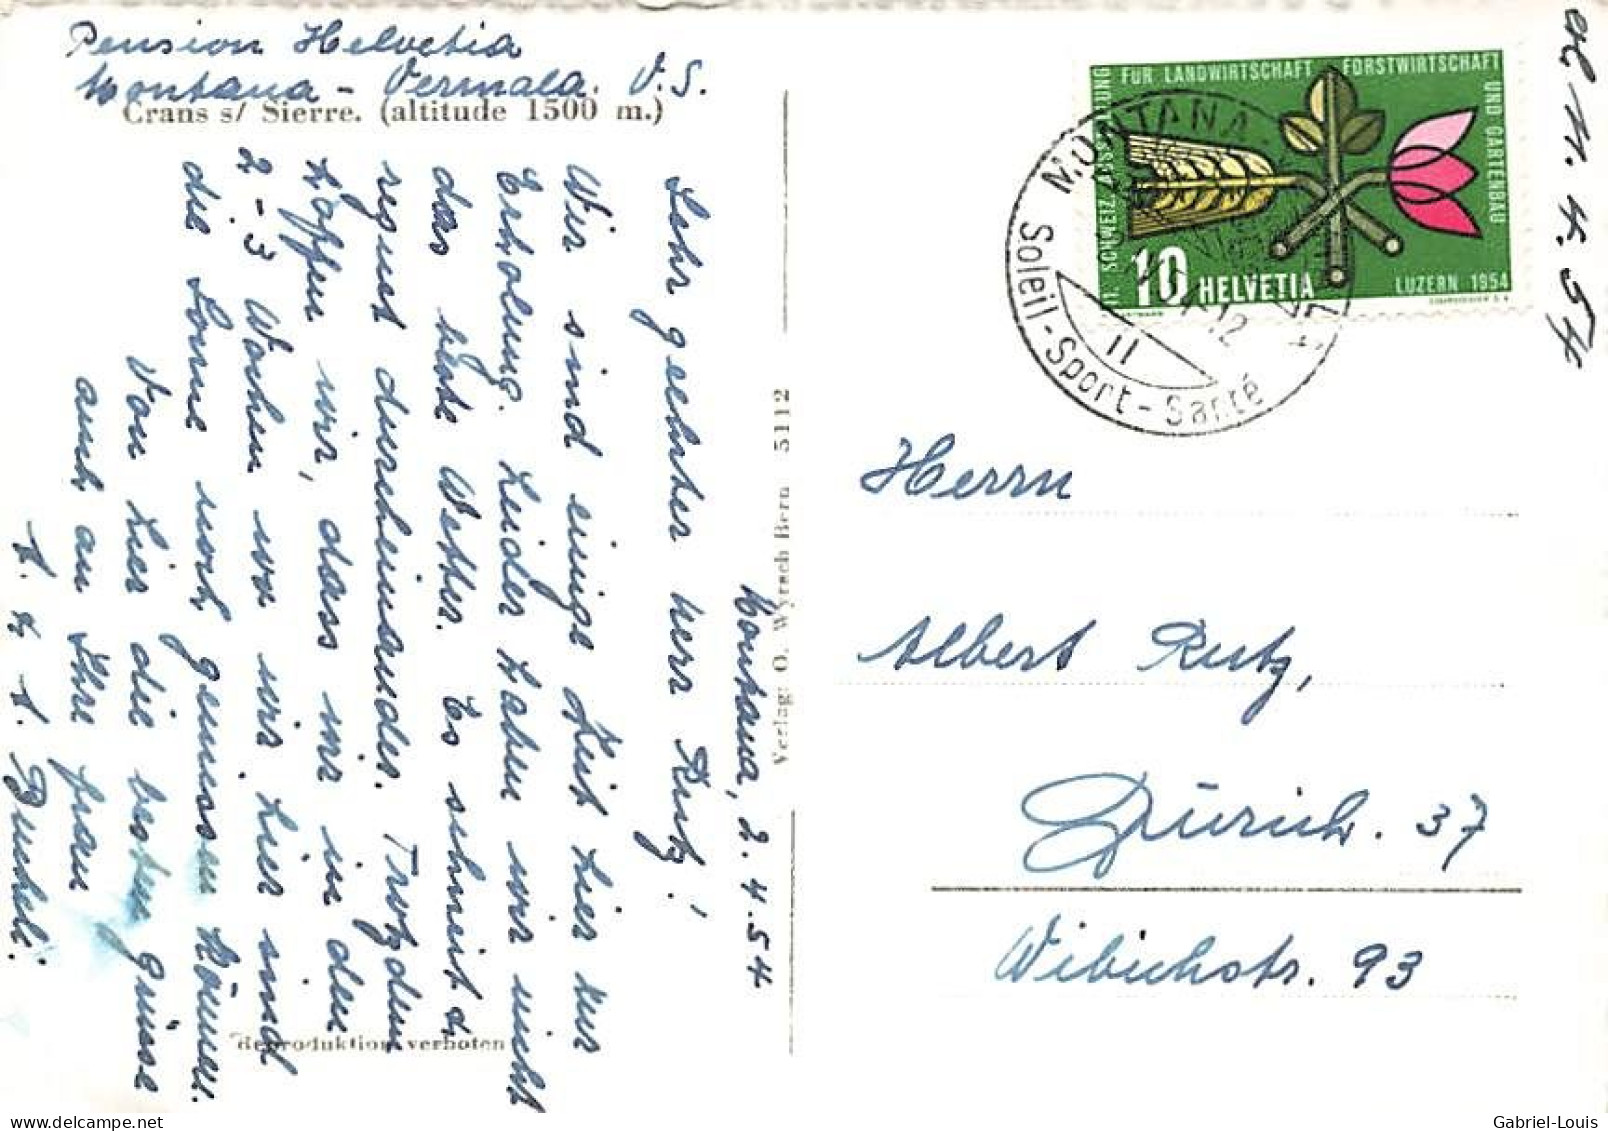 Pension Helvetia
Montana - Vermala. V.S.
Crans s/ Sierre. (altitude 1500 m.)
Montana, 2.4.54
Sehr geehrter Herr Rutz!
Wir sind einige Zeit hier zur
Erholung. Leider haben wir nicht
das gute Wetter. Es schneit &
regnet durcheinander. Trotzdem
hoffen wir, dass wir in den
2-3 Wochen wo wir hier sind
die Sonne noch geniessen können.
Von hier die besten Grüsse
auch an Ihre Frau
A. & A. Buecheli.
Verlag: O. Wyrsch Bern 5112
Reproduktion verboten
11. SCHWEIZ. AUSSTELLUNG FÜR LANDWIRTSCHAFT FORSTWIRTSCHAFT UND GARTENBAU
10 HELVETIA
LUZERN 1954
COURVOISIER S.A.
MONTANA
Soleil-Sport-Santé
11. 4. 54
Herrn
Albert Rutz,
Zürich. 37
Wibichstr. 93
Gabriel-Louis